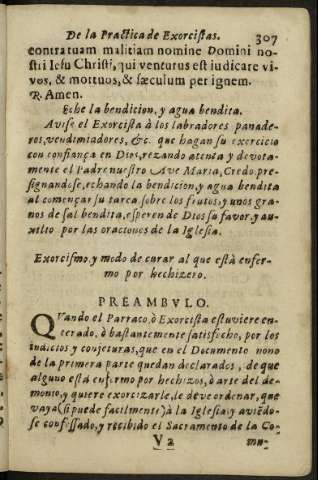 De la Practica de Exorcistas. 307
contra tuam malitiam nomine Domini no-
stri Iesu Christi, qui venturus est iudicare vi-
vos, & mottuos, & sæculum per ignem.
℟. Amen.
Eche la bendicion, y agua bendita.
Avise el Exorcista à los labradores panade-
ros, vendimiadores, &c. que hagan su exercicio
con confiança en Dios, rezando atenta y devota-
mente el Padre nuestro Ave Maria, Credo, pre-
signandose, echando la bendicion, y agua bendita
al començar su tarea sobre los frutos, y unos gra-
nos de sal bendita, esperen de Dios su favor, y au-
xilio por las oraciones de la Iglesia.
Exorcismo, y modo de curar al que està enfer-
mo por hechizero.
PREAMBVLO.
QVando el Parraco, ò Exorcista estuviere en-
terado, ò bastantemente satisfecho, por los
indicios y conjeturas, que en el Documento nono
de la primera parte quedan declarados, de que
alguno està enfermo por hechizos, ò arte del de-
monio, y quiere exorcizarle, le deve ordenar, que
vaya (si puede facilmente) à la Iglesia, y aviẽdo-
se confessado, y recibido el Sacramento de la Co-
V 2 mu-